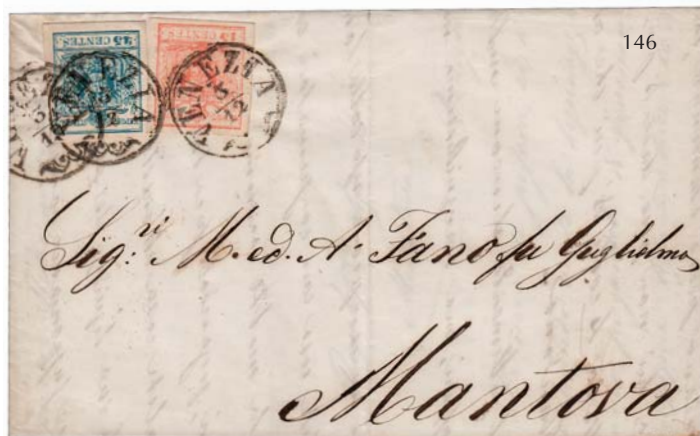 146
45 CENTES
15 CENTES
VENEZIA
VENEZIA
Sig:ri M. ed. A. Fano fu Guglielmo
Mantova